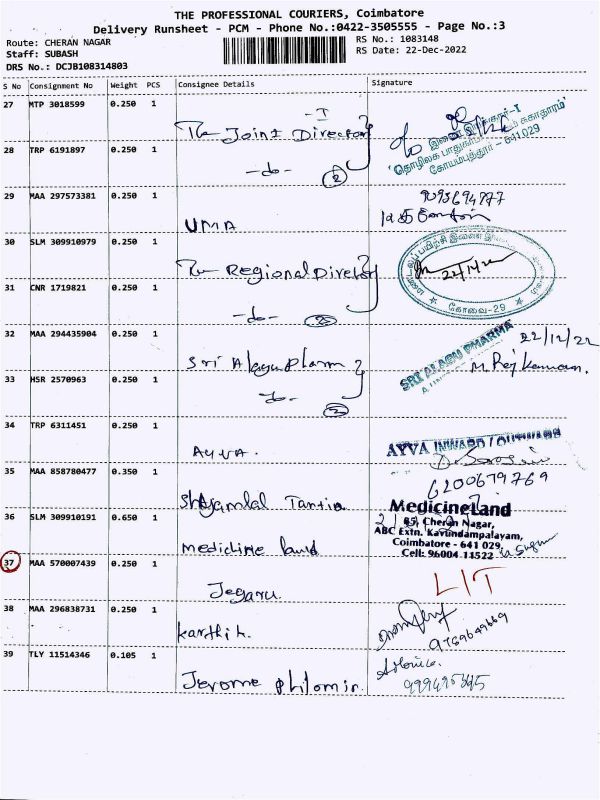 THE PROFESSIONAL COURIERS, Coimbatore
Delivery Runsheet - PCM - Phone No.:0422-3505555 - Page No.:3
Route: CHERAN NAGAR
RS No.: 1083148
Staff: SUBASH
RS Date: 22-Dec-2022
DRS No.: DCJB108314803
S No Consignment No Weight PCS Consignee Details Signature
27 MTP 3018599 0.250 1
The Joint Director - I
இணை இயக்குநர்-I
28 TRP 6191897 0.250 1
-do- 2
கோயம்புத்தூர் - 641029
29 MAA 297573381 0.250 1
UMA
30 SLM 309910979 0.250 1
The Regional Director
22/12/22
31 CNR 1719821 0.250 1
-do- 2
கோவை-29
32 MAA 294435904 0.250 1
Sri Alagu Pharm
SRI ALAGU PHARMA
22/12/22
33 HSR 2570963 0.250 1
-do- 2
34 TRP 6311451 0.250 1
AYVA.
AYVA INWARD / OUTWARD
35 MAA 858780477 0.350 1
Shyamlal Tantia
6200679769
36 SLM 309910191 0.650 1
medicine land
MedicineLand
85, Cheran Nagar,
ABC Extn. Kavundampalayam,
Coimbatore - 641 029.
Cell: 96004 11522
37 MAA 570007439 0.250 1
Jegaru.
LIT
38 MAA 296838731 0.250 1
Karthik.
9789649669
39 TLY 11514346 0.105 1
Jerome Philomin.